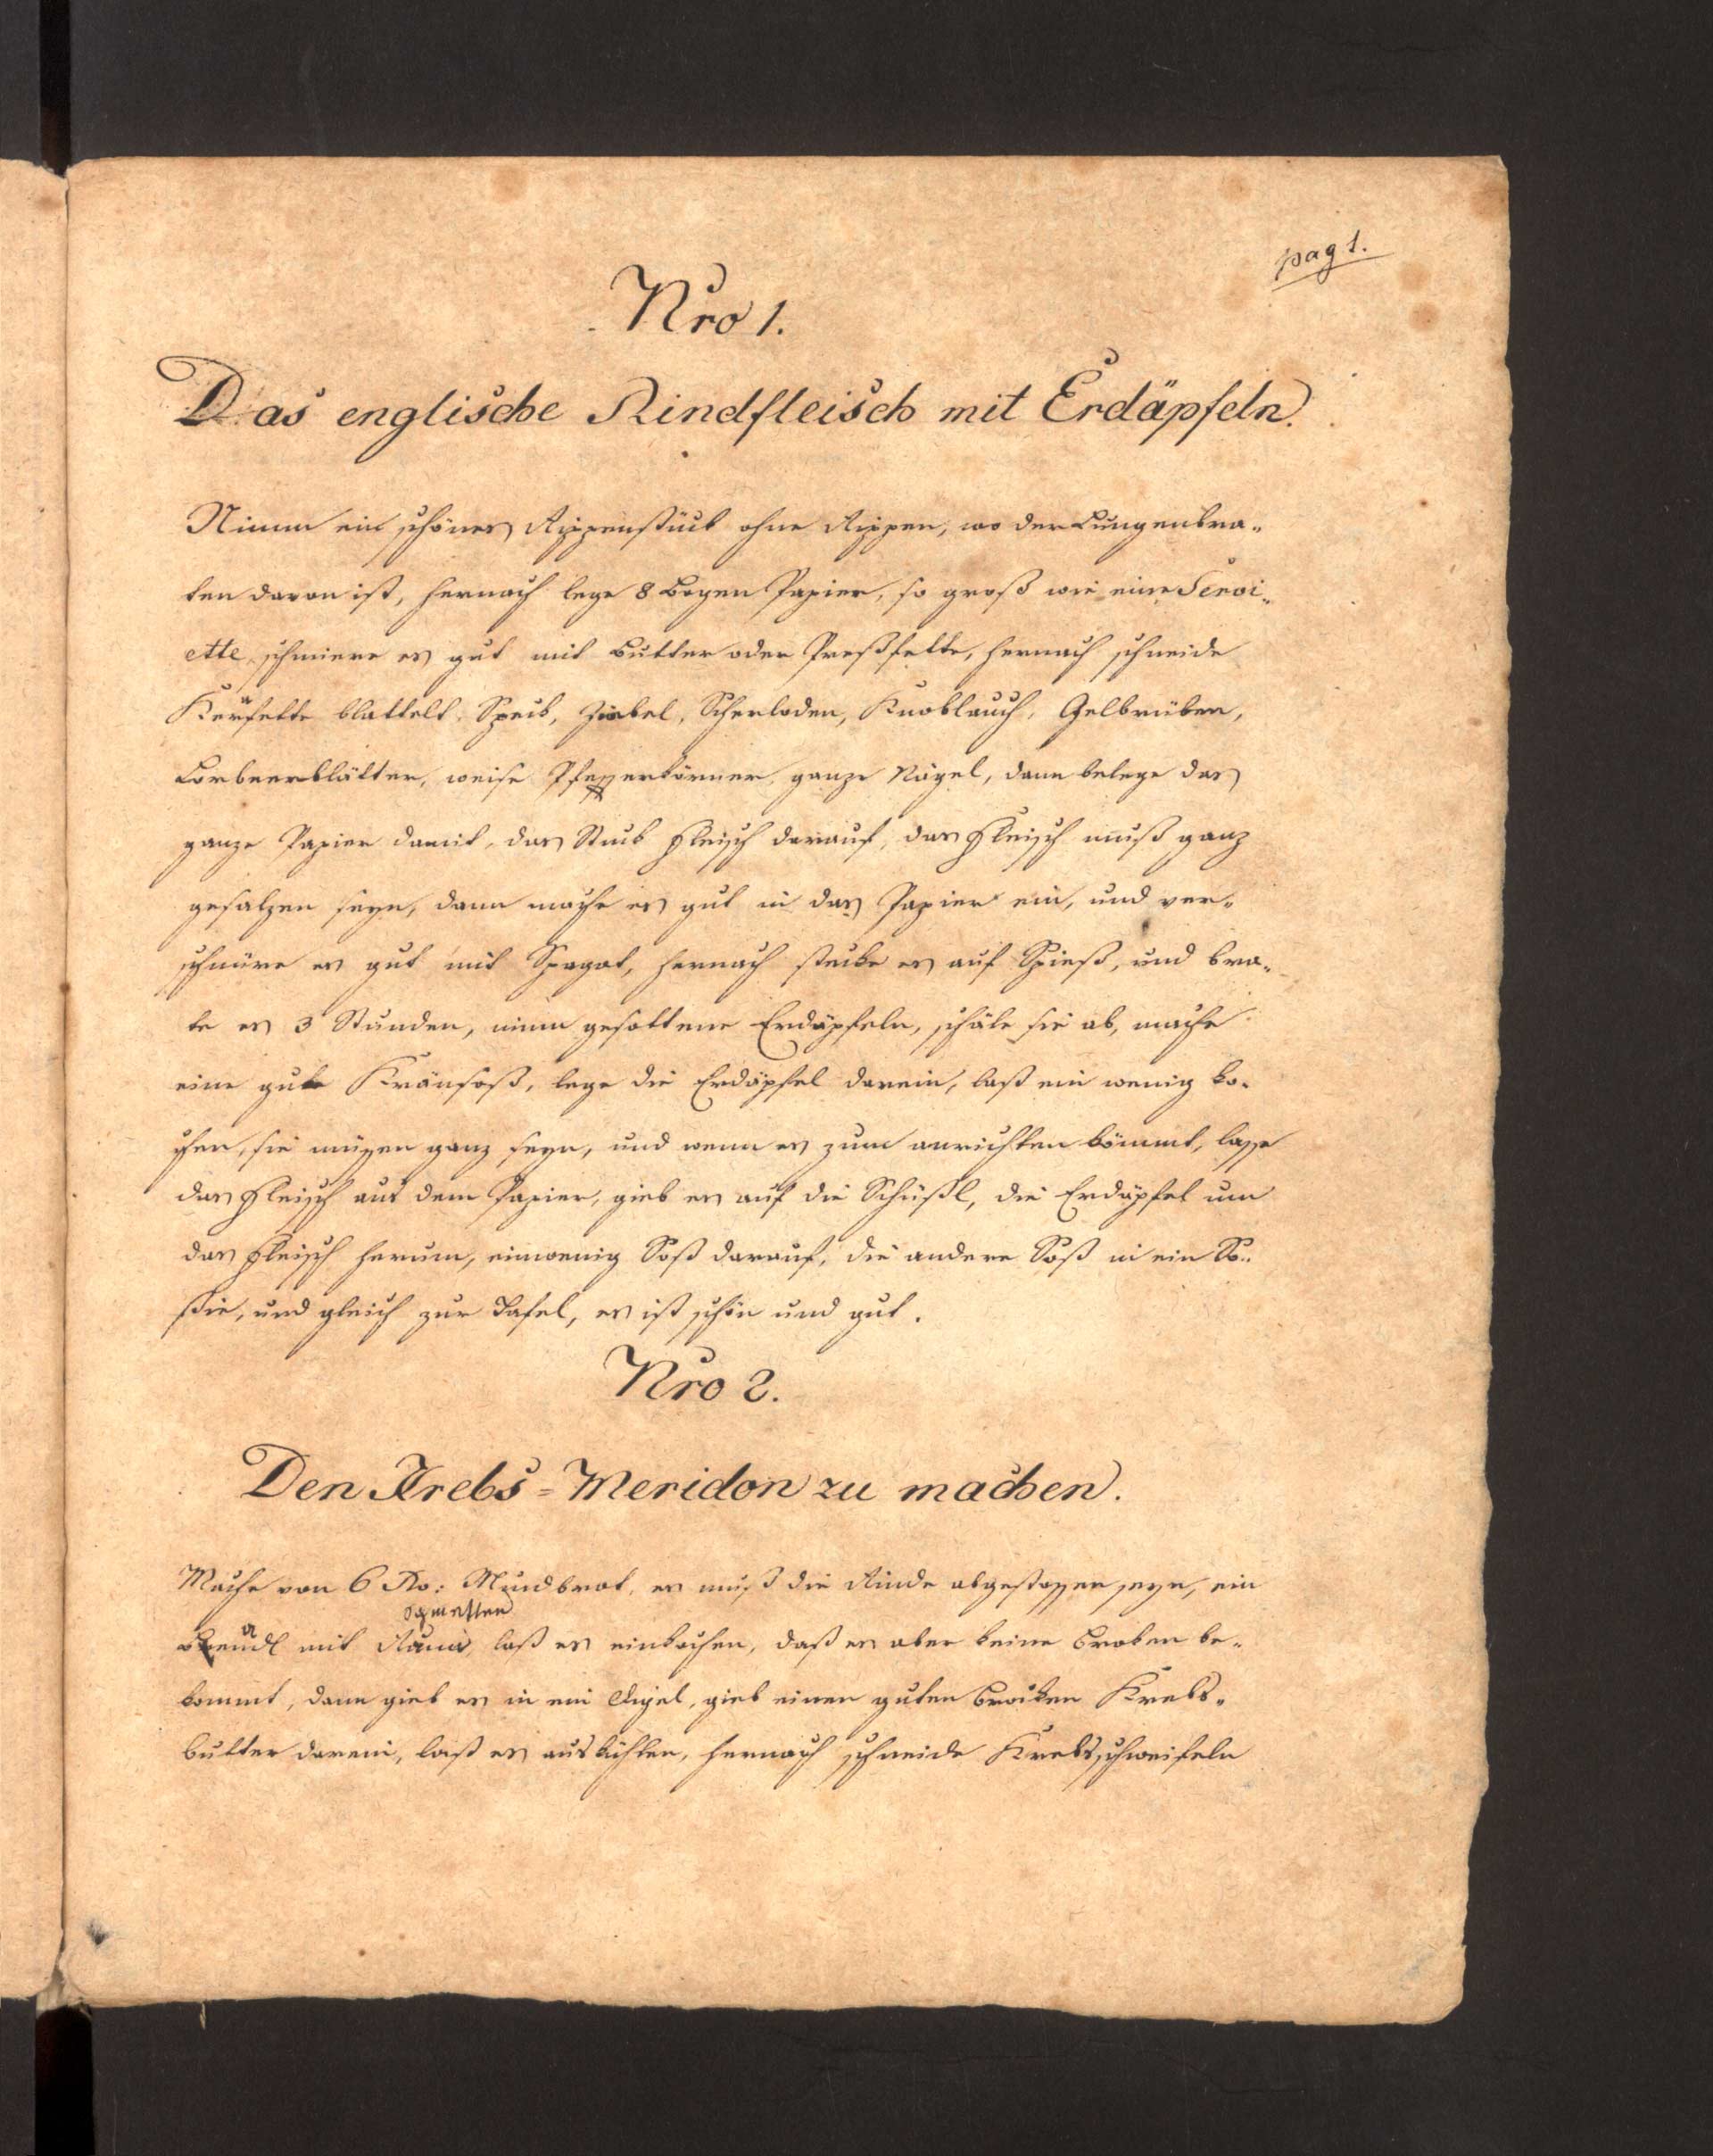 pag 1.
Nro 1.
Das englische Rindfleisch mit Erdäpfeln.
Nimm ein schönes Rippenstück ohne Rippen, wo der Lungenbra-
ten davon ist, hernach lege 8 Bogen Papier, so groß wie eine Servi-
ette, schmiere es gut mit Butter oder Preßfette, hernach schneide
Kernfette blattelt, Speck, Zwiebel, Scherloden, Knoblauch, Gelbrüben,
Lorbeerblätter, weise Pfefferkörner, ganze Nägel, dann belege das
ganze Papier damit, das Stuck Fleisch darauf, das Fleisch muß ganz
gesalzen seyn, dann mache es gut in das Papier ein, und ver-
schnüre es gut mit Spagat, hernach stecke es auf Spieß, und bra-
te es 3 Stunden, nimm gesottene Erdäpfeln, schäle sie ab, mache
eine gute Kränsoß, lege die Erdäpfel darein, laß ein wenig ko-
chen, sie müssen ganz seyn, und wenn es zum anrichten kömmt, lasse
das Fleisch aus dem Papier, gieb es auf die Schüßl, die Erdäpfel um
das Fleisch herum, einwenig Soß darauf, die andere Soß in ein So-
ßie, und gleich zur Tafel, es ist schön und gut.
Nro 2.
Den Krebs-Meridon zu machen.
Mache von 6 Xr: Mundbrot, es muß die Rinde abgestossen seyn, ein
Schmetten
mit Raum, laß es einkochen, daß es aber keine Broken be-
kommt, dann gieb es in ein Weigel, gieb einen guten Brocken Krebs-
butter darein, laß es auskühlen, hernach schneide Krebsschweifeln